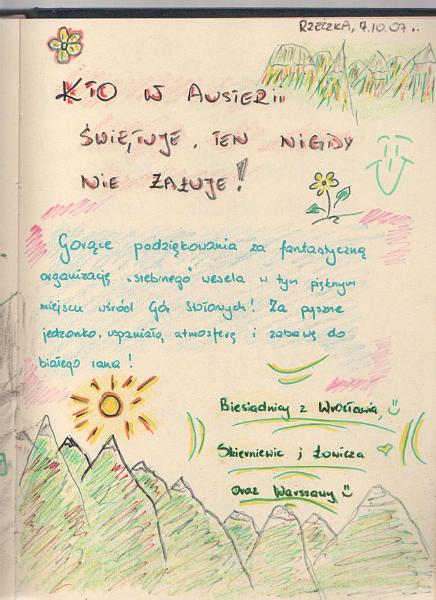 RZECZKA, 7.10.07..
KTO W AUSTERII
ŚWIĘTUJE, TEN NIGDY
NIE ŻAŁUJE!
Gorące podziękowania za fantastyczną
organizację „srebrnego" wesela w tym pięknym
miejscu wśród Gór Stołowych! Za pyszne
jedzonko, wspaniałą atmosferę i zabawę do
białego rana!
Biesiadnicy z Wrocławia,
Skierniewic i Łowicza
oraz Warszawy